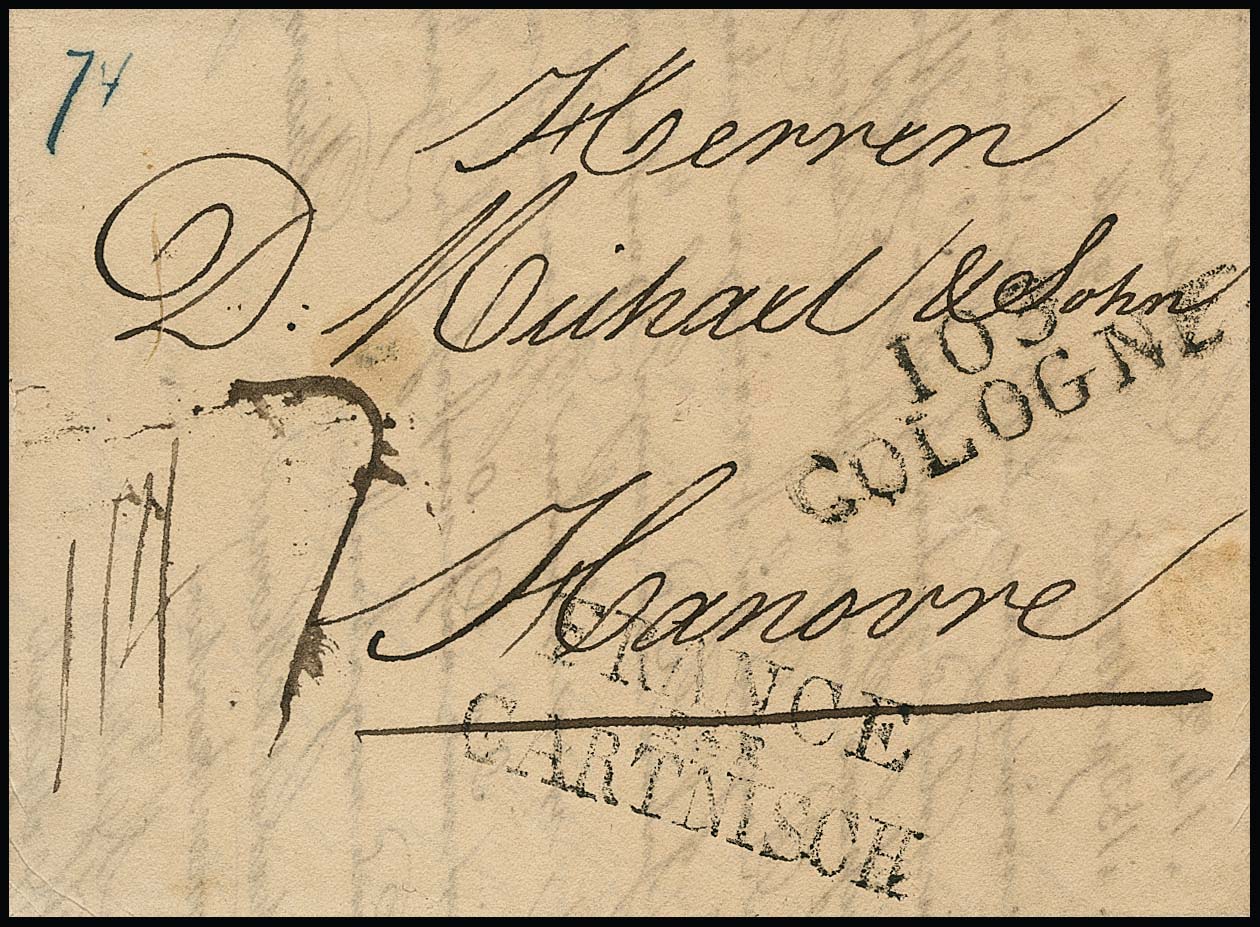 74
Herren
D. Michael & Sohn
103
COLOGNE
Hanovre
FRANCE
PAR
GARTNISCH